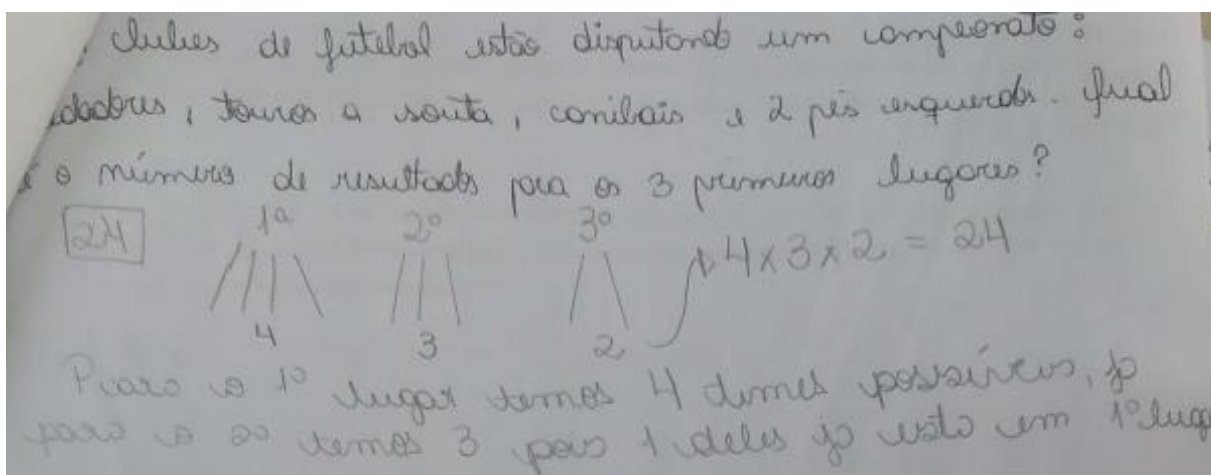 clubes de futebol estão disputando um campeonato:
dadores, touros a souta, canibais e 2 pés esquerdos. Qual
é o número de resultados para os 3 primeiros lugares?
24 1º 2º 3º
4x3x2 = 24
4 3 2
Para o 1º lugar temos 4 times possíveis, já
para o 2º temos 3 pois 1 deles já está em 1º lug